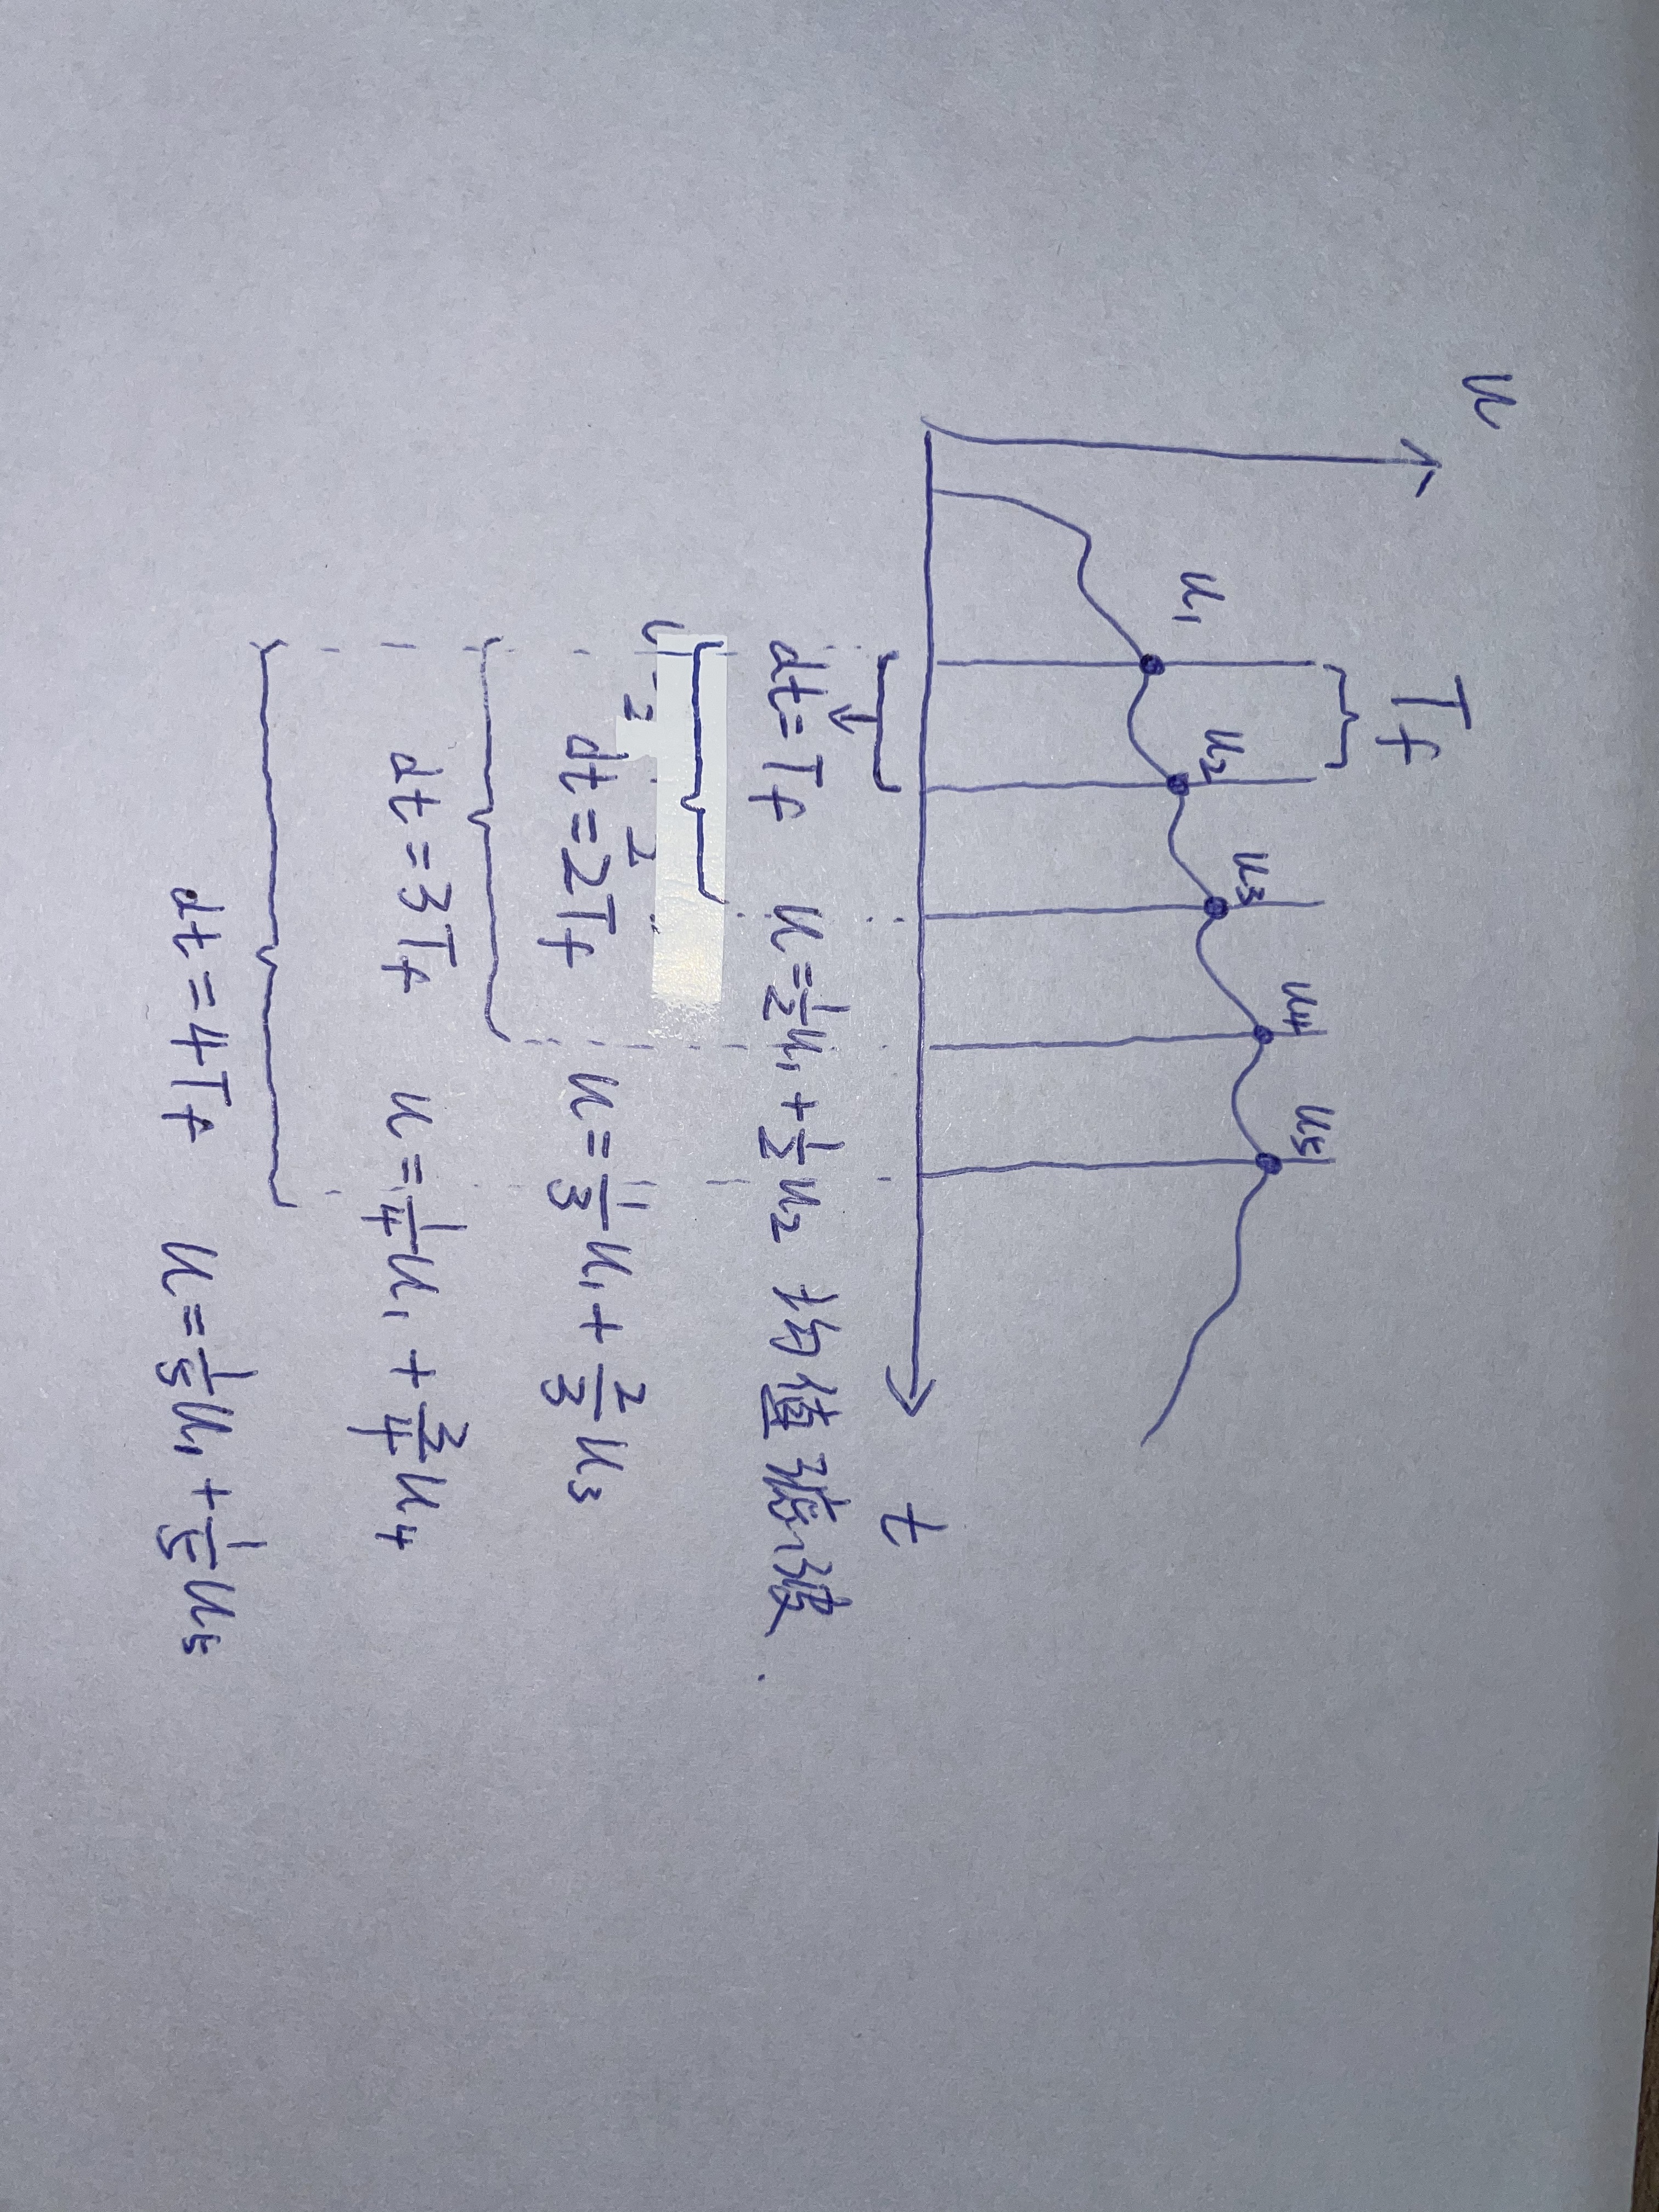 u
T_f
u₁ u₂ u₃ u₄ u₅
t
dt=T_f u=½u₁+½u₂ 均值滤波.
2 2
dt=2T_f u=1/3 u₁+2/3 u₃
dt=3T_f u=1/4 u₁+3/4 u₄
dt=4T_f u=1/5 u₁+1/5 u₅